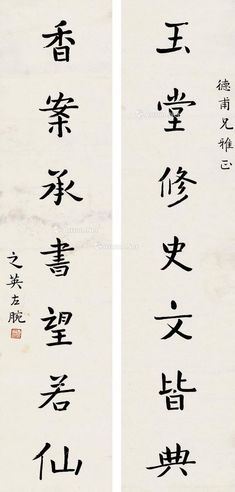 德甫兄雅正
玉堂修史文皆典
香案承書望若仙
之英左腕